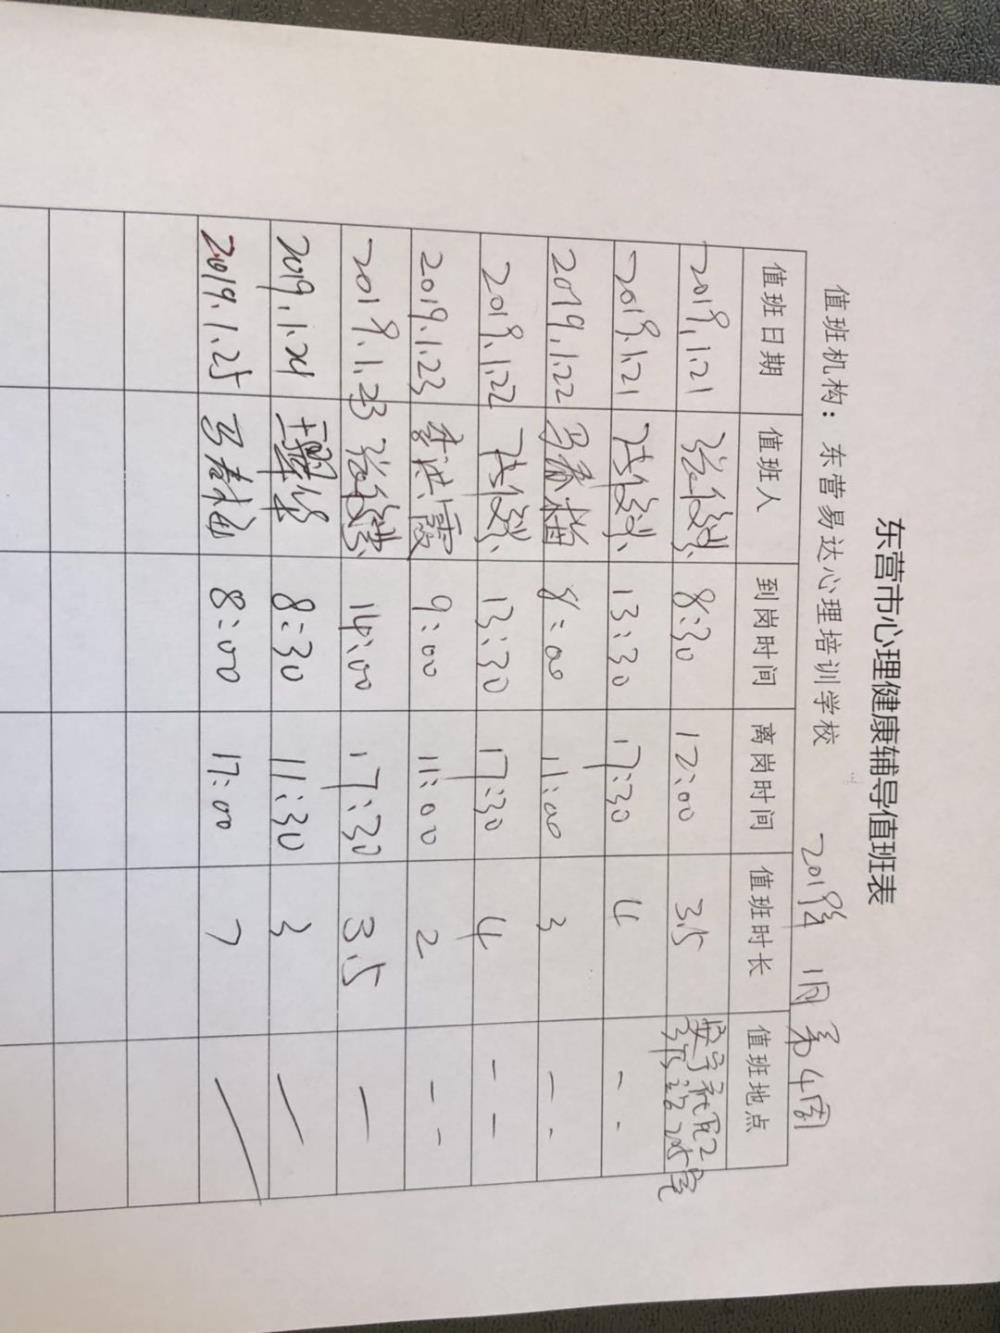 东营市心理健康辅导值班表
值班机构：东营易达心理培训学校 2019年 1月 第4周
值班日期 值班人 到岗时间 离岗时间 值班时长 值班地点
2019.1.21 8:30 12:00 3.5
2019.1.21 13:30 17:30 4 - -
2019.1.22 马春梅 8:00 11:00 3 - -
2019.1.22 13:30 17:30 4 - -
2019.1.23 李洪霞 9:00 11:00 2 - -
2019.1.23 14:00 17:30 3.5 —
2019.1.24 8:30 11:30 3 —
2019.1.25 8:00 17:00 7